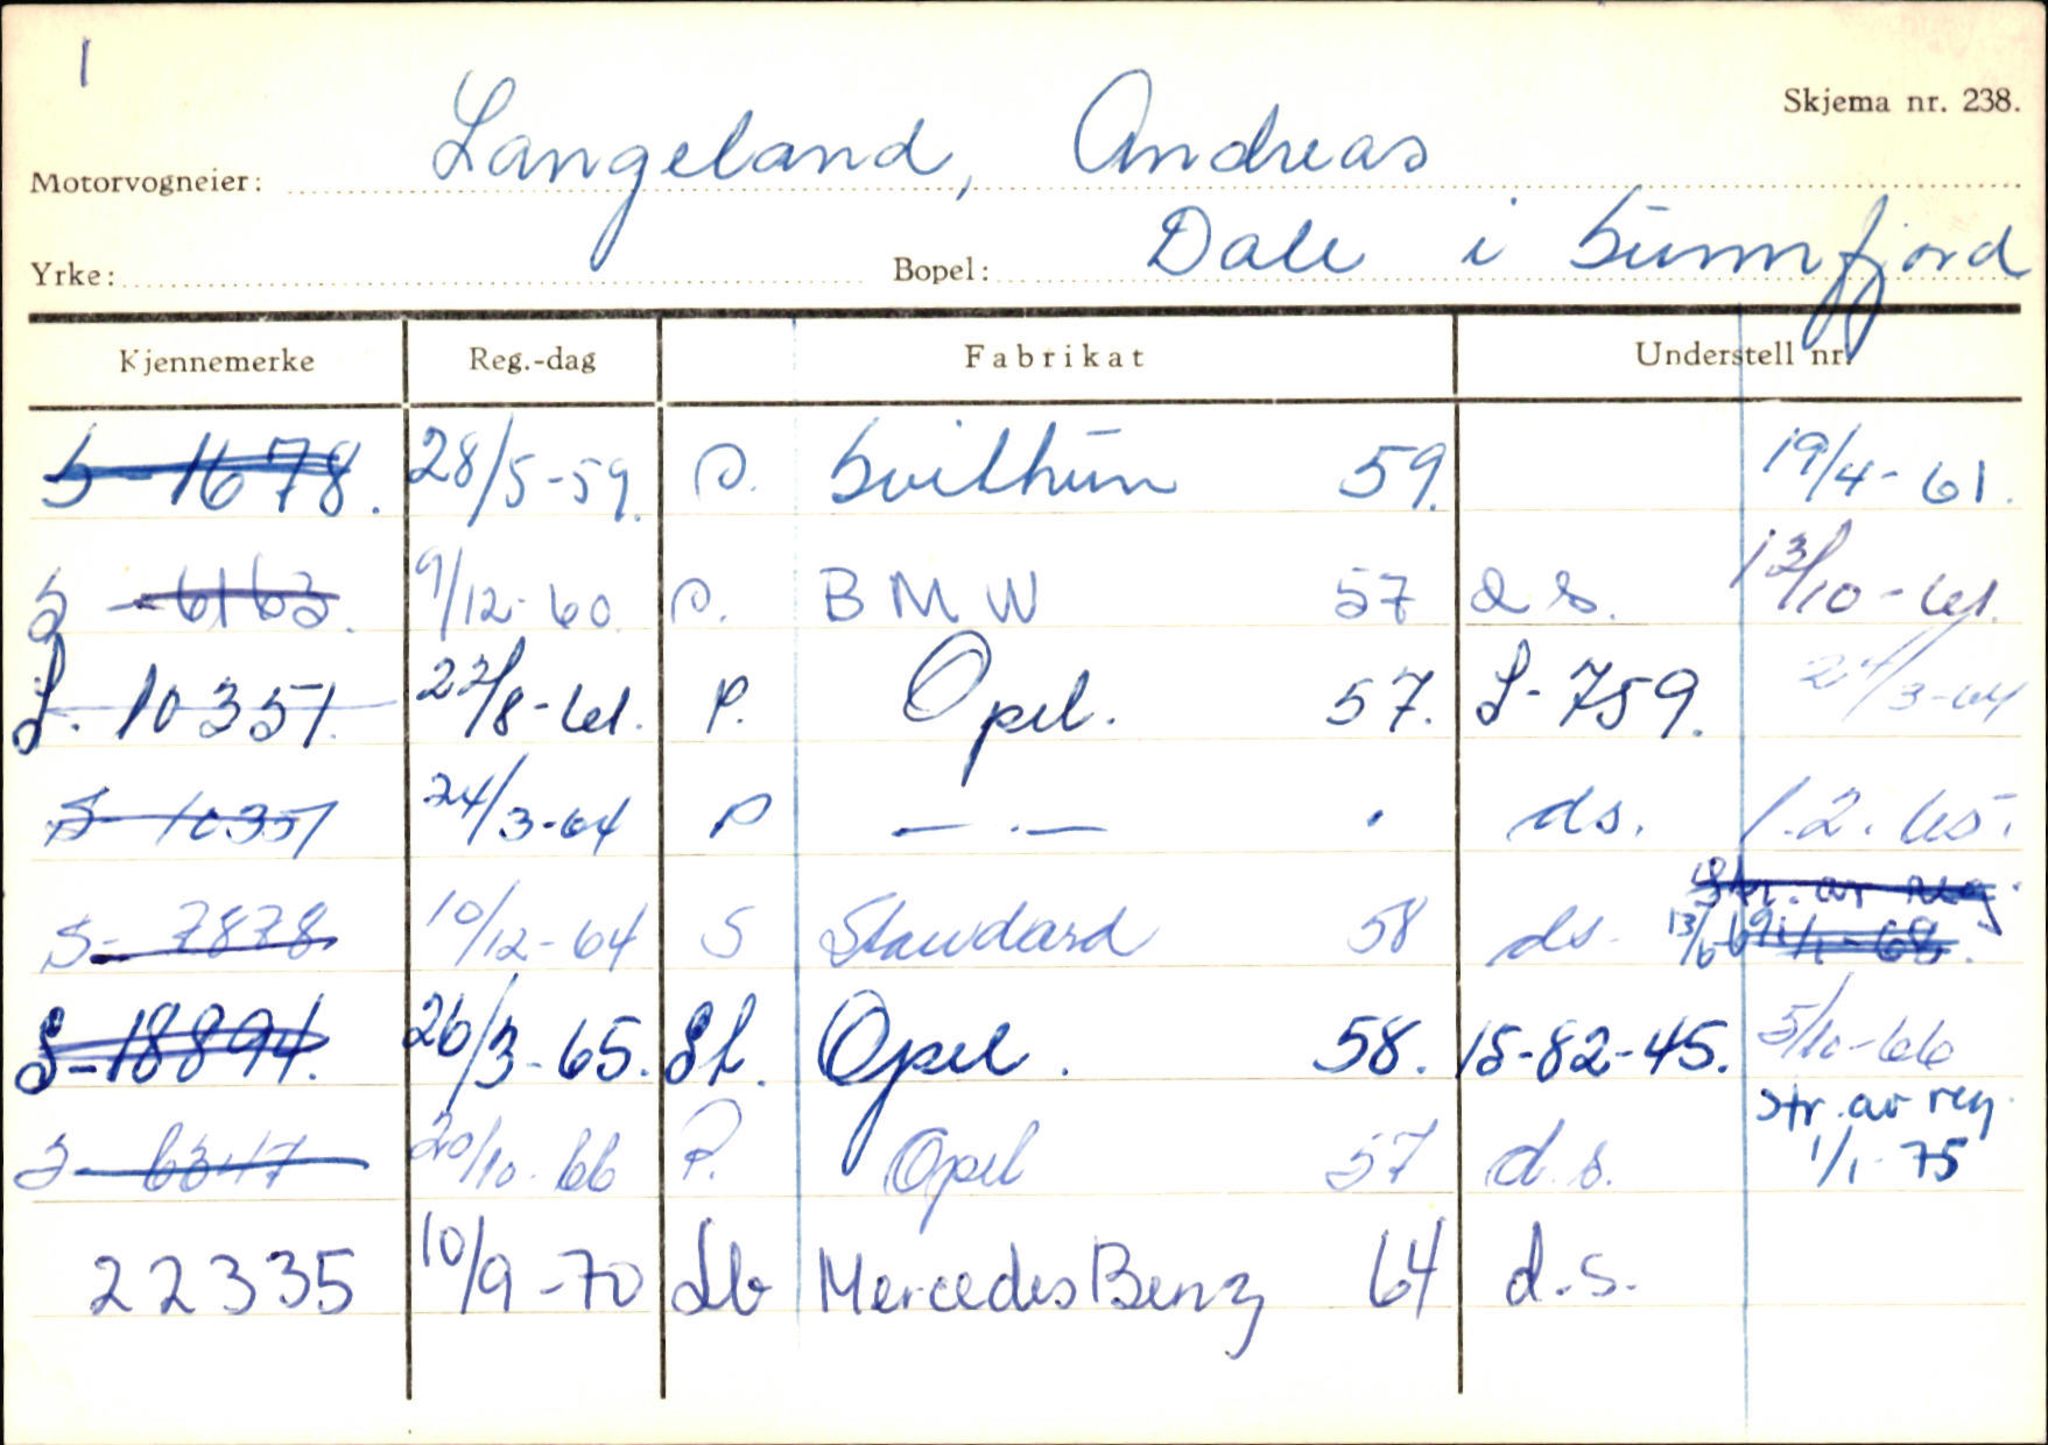 1
Skjema nr. 238.
Motorvogneier: Langeland, Andreas
Yrke: Bopel: Dale i Sunnfjord
Kjennemerke Reg.-dag Fabrikat Understell nr.
S-1678. 28/5-59. P. Svithun 59. 19/4-61.
S-6163. 9/12-60. P. BMW 57 d s. 13/10-61.
S-10351. 22/8-61. P. Opel. 57. S-759. 24/3-64
S-10351 24/3-64 P — . — . ds. 1.2.65.
Str. av reg.
S-7878 10/12-64 S Standard 58 ds. 13/6-69 1/1-68.
S-18894. 26/3-65. St. Opel. 58. 15-82-45. 5/10-66
str. av reg.
S-6347 20/10-66 P. Opel 57 d.s. 1/1-75
22335 10/9-70 Lb Mercedes Benz 64 d.s.